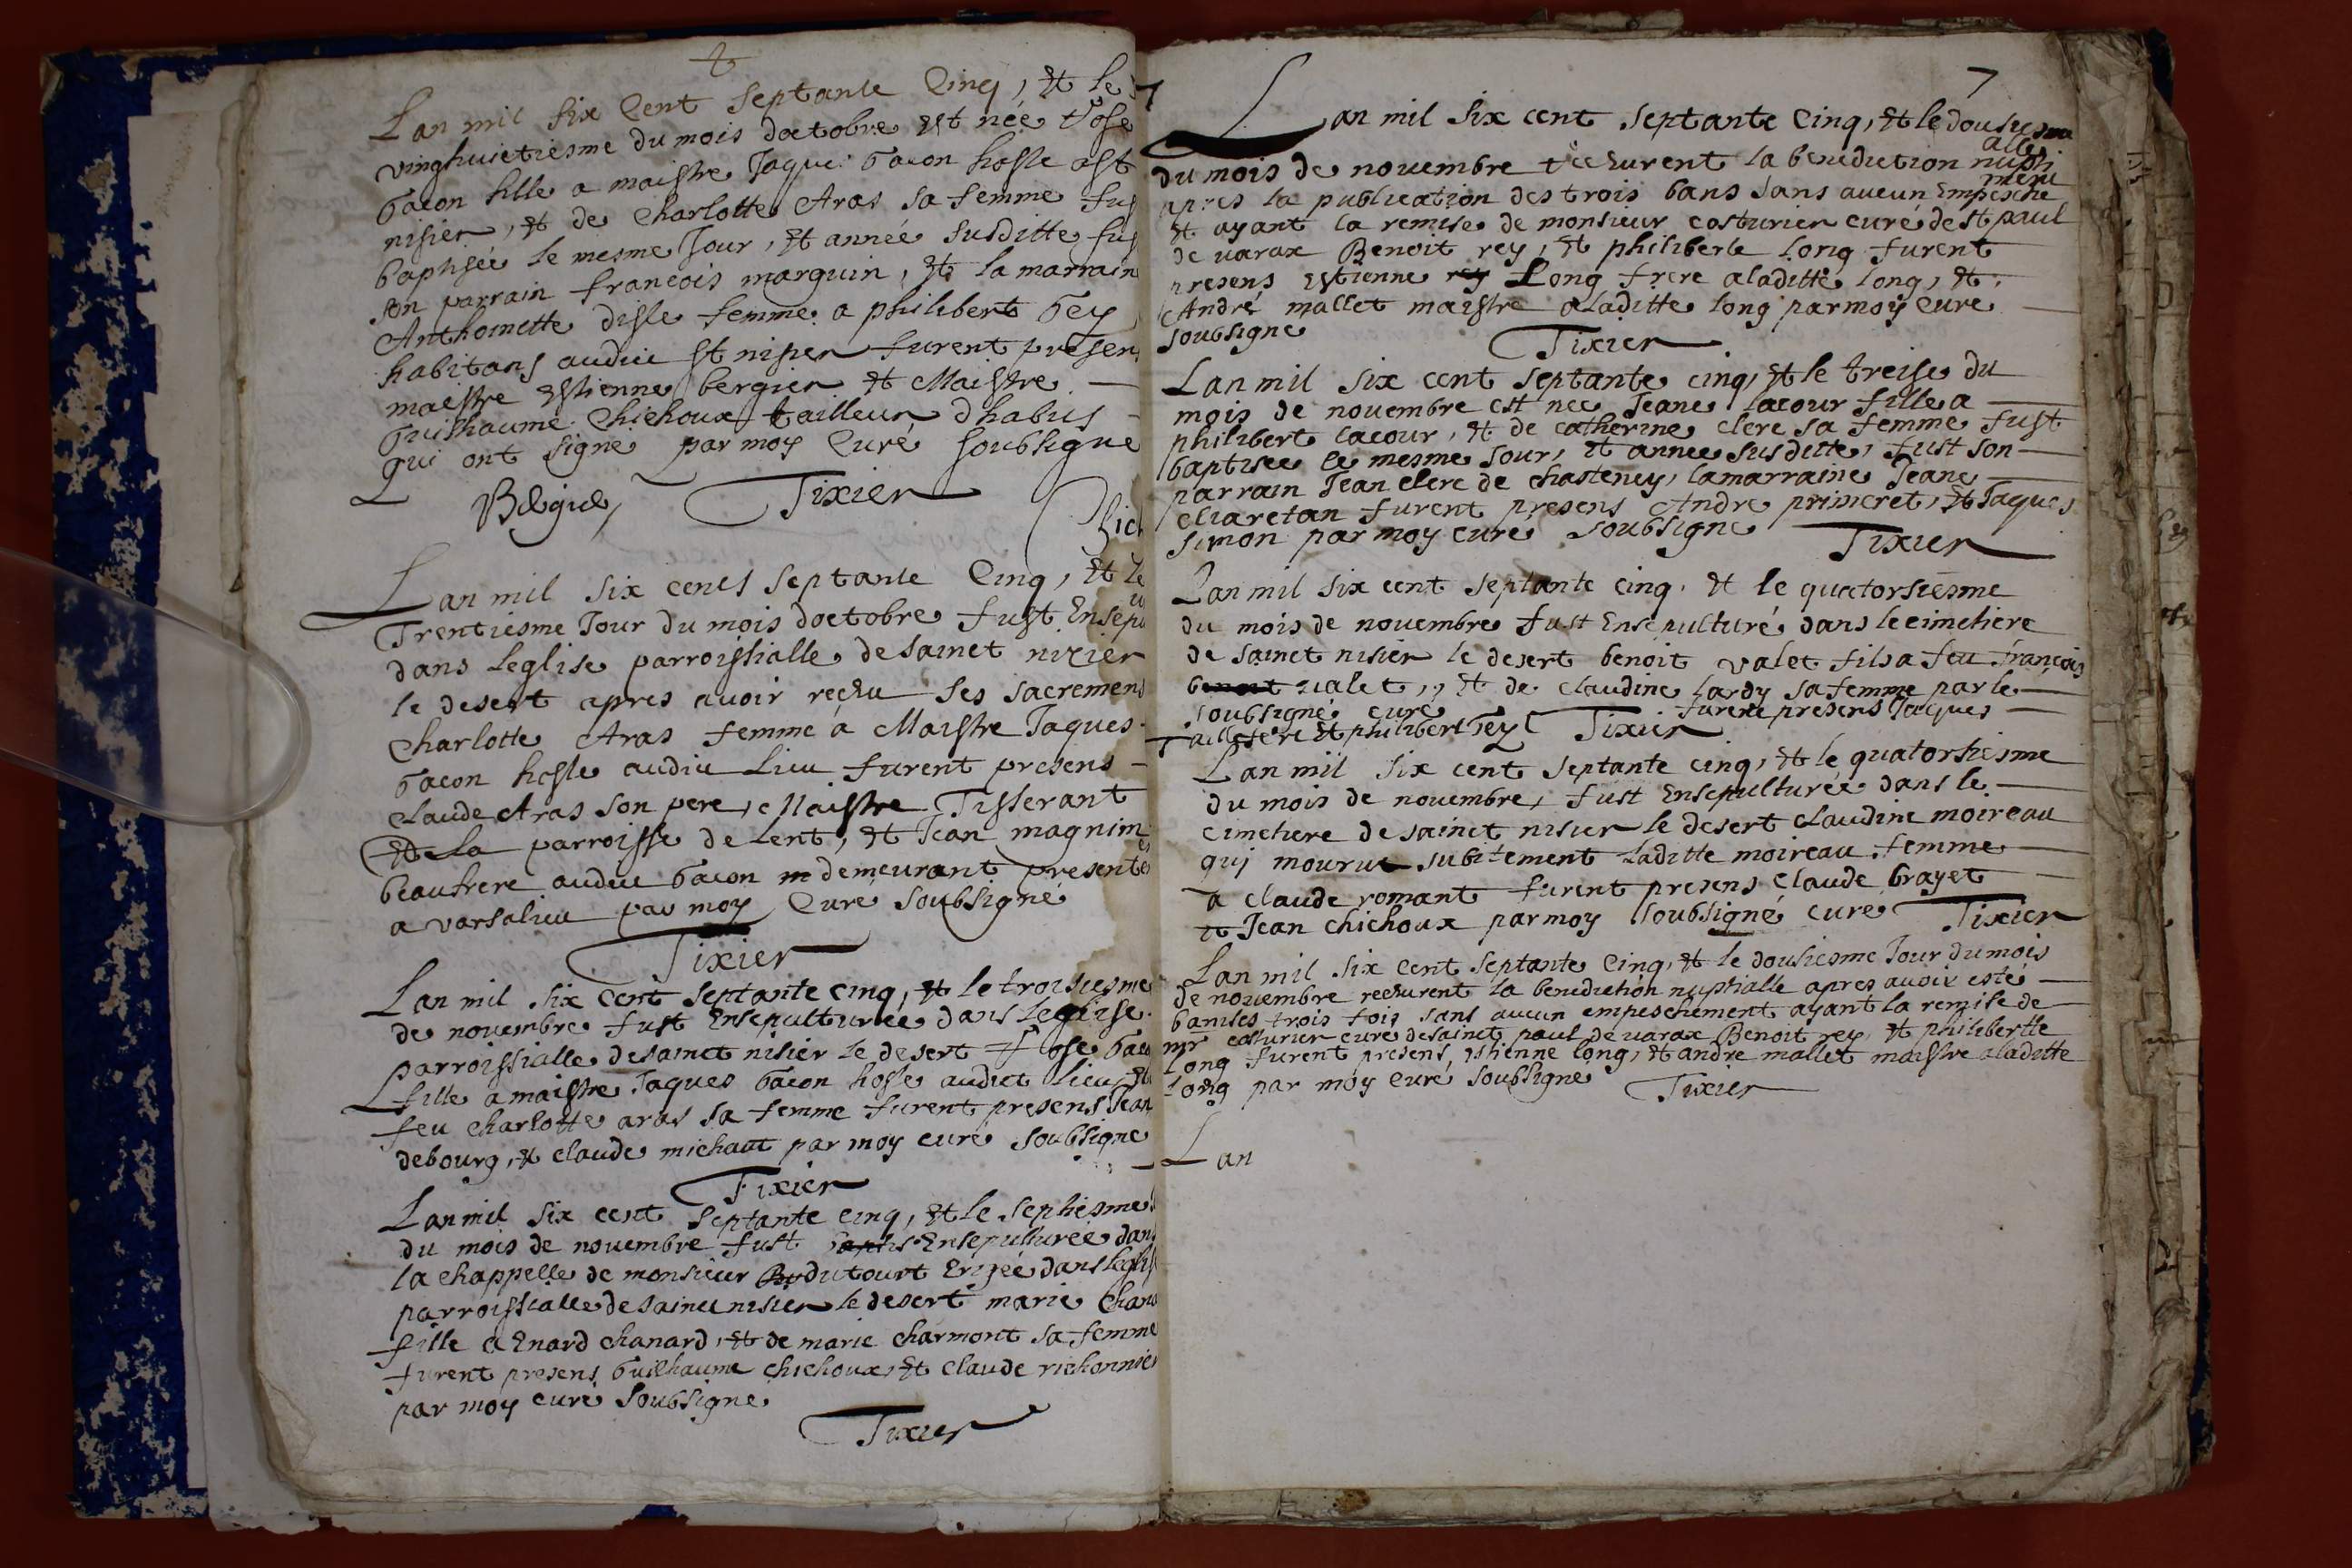 Lan mil six cent septante cinq, et le
vinghuictiesme du mois doctobre est née Rose
Gacon fille a maistre Jaque Gacon hoste a st
nisier, et de Charlotte Aras sa femme fus
baptisée le mesme Jour, et année susditte fus
son parrain francois marguin, et la marrain
Anthoinette disle femme a philibert Gey
habitans audict st nisier furent presens
maistre Estienne bergier et Maistre
Guilhaume Chichoux tailleur dhabits
qui ont signe par moy Curé soubsigne
Tixier
Lan mil six cents septante Cinq, et le
Trentiesme Jour du mois doctobre fust Ensepu
dans Leglise parroissialle de sainct nizier
le desert apres avoir recheu ses sacremens
Charlotte Aras femme a Maistre Jaques
Gacon hoste audict Lieu furent presens
Claude Aras son pere, Maistre Tisserant
et de la parroisse de Lent, et Jean magnim
beaufrere audict Gacon m demeurant presente
a varsalieu par moy Curé soubsigné
Tixier
Lan mil six cent septante cinq, et le troisiesme
de novembre fust Ensepulturée dans Leglise
parroissialle de sainct nisier le desert Rose Gaco
fille a maistre Jaques Gacon hoste audict Lieu et
feu Charlotte aras sa femme furent presens Jean
debourg, et Claude michaut par moy curé soubsigne
Tixier
Lan mil six cent septante cinq, et le septiesme
du mois de novembre fust baptis Ensepulturée dans
la chappelle de monsieur dutourt Erigée dans leglis
parroissialle de sainct nisier le desert marie Chana
fille a Enard chanard, et de marie charmont sa femme
furent presens Guilhaume chichoux, et Claude richonnier
par moy curé soubsigne
Tixier
7
Lan mil six cent septante Cinq, et le dousiesme
du mois de novembre recheurent la benediction nupti
alle
apres la publication des trois bans sans aucun Empesche
ment
et ayant la remise de monsieur costurier curé de st paul
de varax Benoit rey, et philiberte Long furent
presens Estienne rey Long frere a laditte Long, et
André mallet maistre a laditte long par moy Curé
soubsigne
Tixier
Lan mil six cent septante cinq, et le treise du
mois de novembre est née Jeane lacour fille a
philibert lacour, et de catherine clerc sa femme fust
baptisee le mesme Jour, et année susditte, fust son
parrain Jean clerc de chasteney, la marraine Jeane
claretan furent presens Andre primeret, et Jaques
simon par moy curé soubsigne Tixier
Lan mil six cent septante cinq, et le quatorsiesme
du mois de novembre fust Ensepulturé dans le cimetiere
de sainct nisier le desert benoit valet fils a feu françois
benoit valet, et de Claudine Lardy sa femme par le
soubsigné curé furent presens Jaques
et philibert Gey Tixier
Lan mil six cent septante cinq, et le quatorsiesme
du mois de novembre, fust Ensepulturée dans le
cimetiere de sainct nisier le desert Claudine moireau
qui mourut subitement laditte moireau femme
a Claude romant furent presens Claude brayet
et Jean Chichoux par moy soubsigné curé Tixier
Lan mil six cent septante Cinq, et le dousiesme Jour du mois
de novembre recheurent la benediction nuptialle apres avoir esté
bannises trois fois sans aucun empeschement ayant la remise de
mr costurier curé de sainct paul de varax Benoit rey, et philibertte
Long furent presens, Estienne long, et andre mallet maistre a laditte
Long par moy Curé soubsigné Tixier
Lan